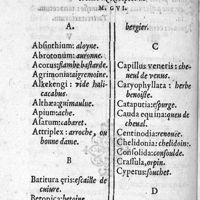 M. GVI.
A.
Absinthium: aloyne.
Abrotonum: auronne.
Acorus: flambe bastarde.
Agrimonia: aigremoine.
Alkekengi : vide hali-
cacabus.
Althæa: guimaulue.
Apium: ache.
Asarum: cabaret.
Attriplex : arroche, ou
bonne dame.
B
Batitura æris: escaille de
cuiure.
Betonica: betoine.
bergier.
C
Capillus veneris : che-
ueul de venus.
Caryophyllata : herbe
benoiste.
Cataputia: espurge.
Cauda equina: queu de
cheual.
Centinodia: renouée.
Chelidonia: chelidoine.
Consolida: consoulde.
Crassula, orpin.
Cyperus: souchet.
D